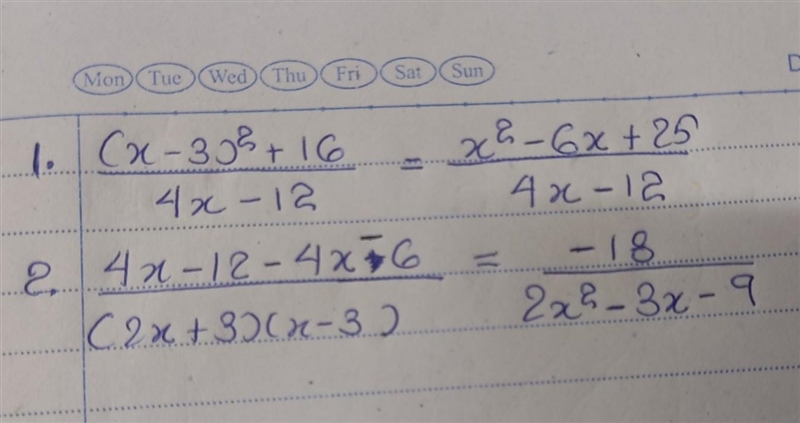 Mon Tue Wed Thu Fri Sat Sun D
1. ((x-3)²+16)/(4x-12) = (x²-6x+25)/(4x-12)
2. (4x-12-4x-6)/((2x+3)(x-3)) = (-18)/(2x²-3x-9)